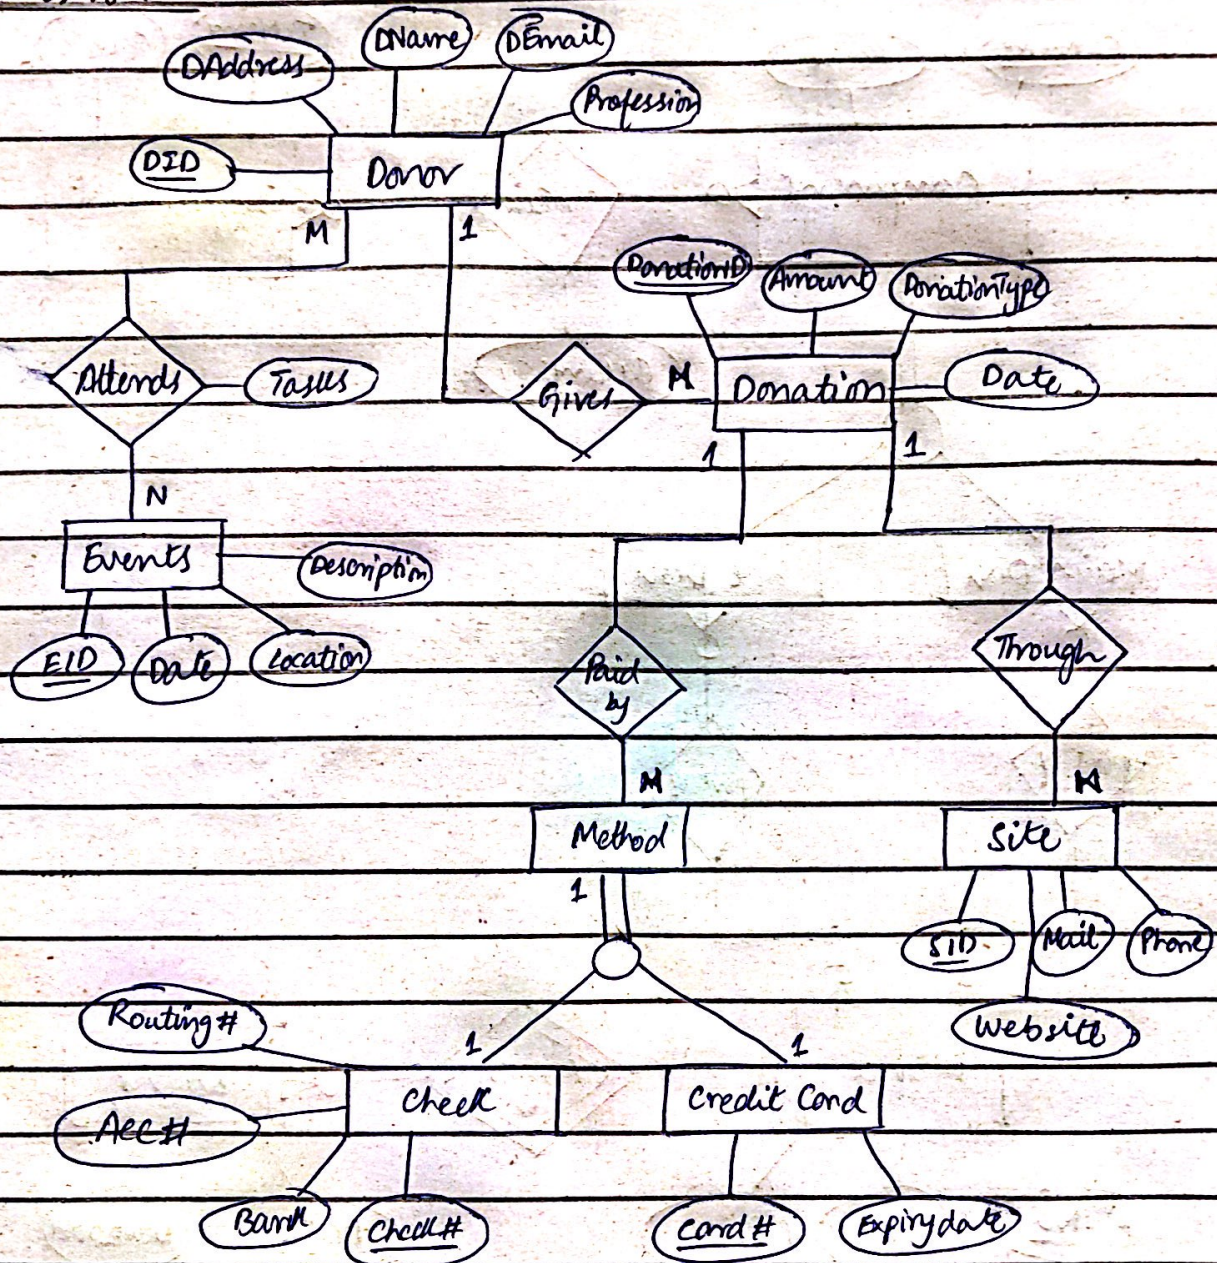 DName
DEmail
DAddress
Profession
DID
Donor
M
1
DonationID
Amount
DonationType
Attends
Tasks
Gives
M
Donation
Date
1
1
N
Events
Description
EID
Date
Location
Paid
by
Through
M
M
Method
Site
1
SID
Mail
Phone
Website
Routing#
1
1
Check
Credit Card
Acc#
Bank
Check#
Card#
Expirydate